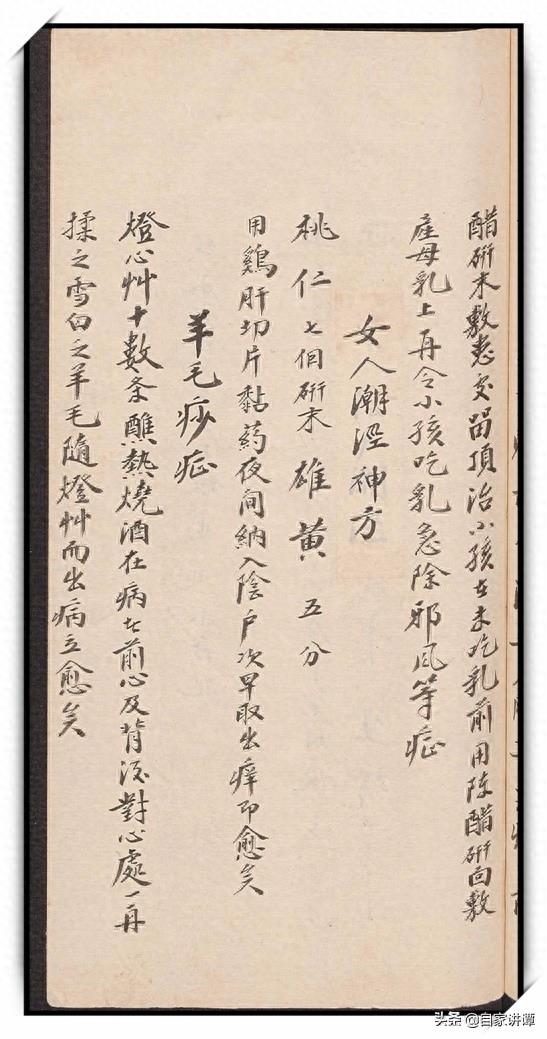 醋研末敷患处留頂治小孩在未吃乳前用陈醋研向敷
産母乳上再令小孩吃乳急除邪风等症
女人潮溼神方
桃仁七個研末 雄黄 五分
用鷄肝切片黏药夜间納入陰户次早取出痒即愈矣
羊毛痧症
燈心艸十数条醮熱燒酒在病者前心及背後對心處一再
揉之雪白之羊毛隨燈艸而出病立愈矣
头条 @自家讲谭